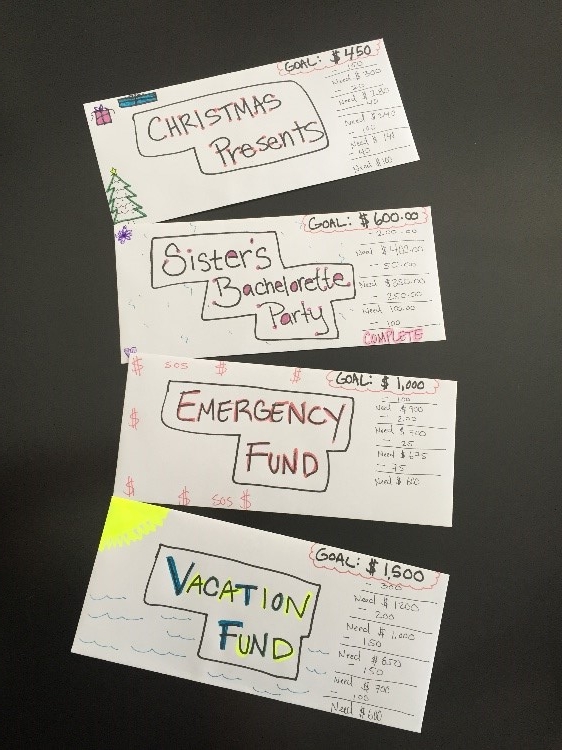 GOAL: $450
150
Need $300
Need $280
40
Need $240
100
Need $140
40
Need $100
CHRISTMAS
Presents
GOAL: $600.00
- 200.00
Need $400.00
- 50.00
Need $350.00
- 250.00
Need 100.00
- 100
COMPLETE
Sister's
Bachelorette
Party
GOAL: $1,000
- 100
Need $900
- 200
Need $700
- 25
Need $675
- 75
Need $600
$ SOS $ $
$
EMERGENCY
FUND
$ $ SOS $
GOAL: $1,500
300
Need $1200
- 200
Need $1,000
- 150
Need $850
- 150
Need $700
- 100
Need $600
VACATION
FUND